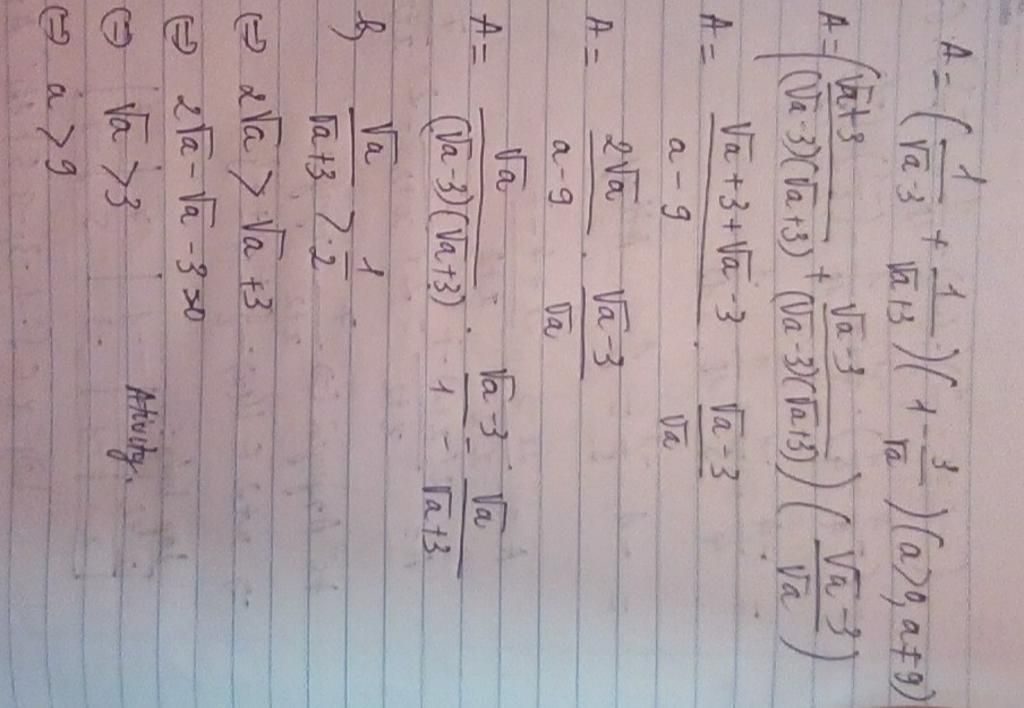 A = (1/(√a-3) + 1/(√a+3)) (1 - 3/√a) (a>0, a≠9)
A = ((√a+3)/((√a-3)(√a+3)) + (√a-3)/((√a-3)(√a+3))) ((√a-3)/√a)
A = (√a+3+√a-3)/(a-9) . (√a-3)/√a
A = 2√a/(a-9) . (√a-3)/√a
A = √a/((√a-3)(√a+3)) . (√a-3)/1 = √a/(√a+3)
b) √a/(√a+3) > 1/2
⇔ 2√a > √a+3
⇔ 2√a-√a-3>0
⇔ √a >3
⇔ a>9